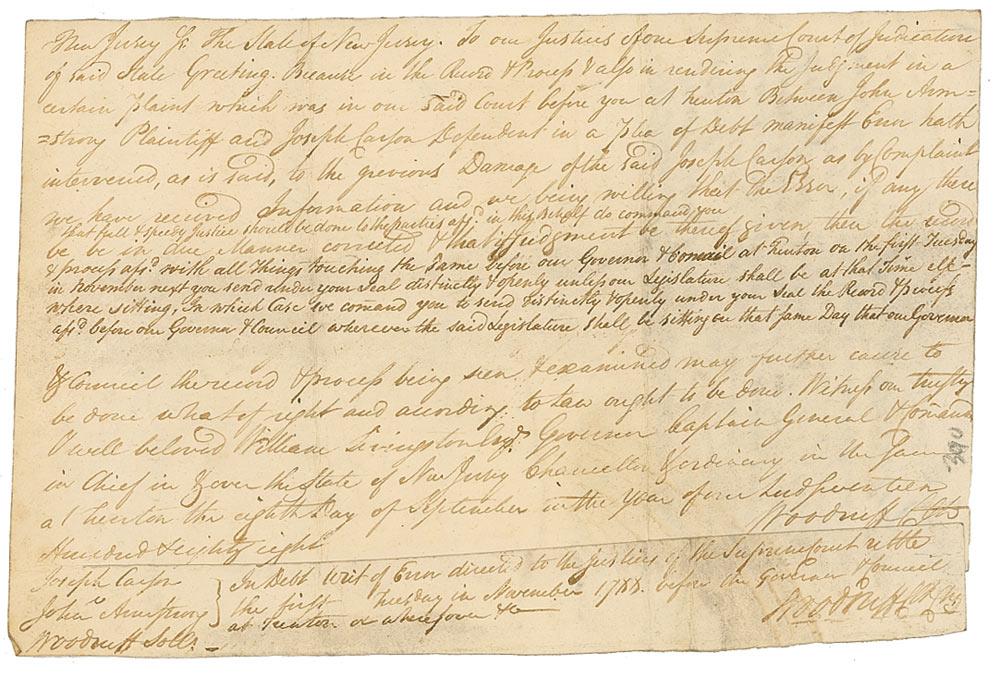 New Jersey Ss The State of New Jersey. To our Justices of our Supreme Court of Judicature
of said State Greeting. Because in the Record & Process & also in rendering the Judgment in a
certain plaint which was in our said Court before you at Trenton Between John Arm=
=strong Plaintiff and Joseph Carson Defendent in a plea of Debt manifest Error hath
intervened, as is said, to the grevious Damage of the said Joseph Carson as by Complaint
we have received Information and we being willing that the Error, if any there
that full & speedy Justice should be done to the parties afsd. in this Behalf do command you
be be in due Manner corrected & that if Judgment be thereof given then the record
& process afsd. with all Things touching the same before our Governor & Council at Trenton on the first Tuesday
in November next you send under your Seal distinctly & openly unless our Legislature shall be at that Time else=
where sitting, In which Case we comand you to send distinctly & openly under your Seal the Record & process
afsd. before our Governor & Council wherever the said Legislature shall be sitting on that same Day that our Governor
& Council the record & process being seen & examined may further cause to
be done what of right and according to Law ought to be done. Witness our trusty
& well beloved William Livingston Esqr. Governor Captain General & Comander
in Chief in & over the State of New Jersey Chancellor & ordinary in the same
at Trenton the eighth Day of September in the year of our Lord Seventeen
Hundred & eighty eight
Woodruff
390
Joseph Carson
John Armstrong
Woodruff Solr.
In Debt Writ of Error directed to the Justices of the Supreme Court retble
the first Tuesday in November 1788. before the Governor & Council
at Trenton or wheresover &c
Woodruff